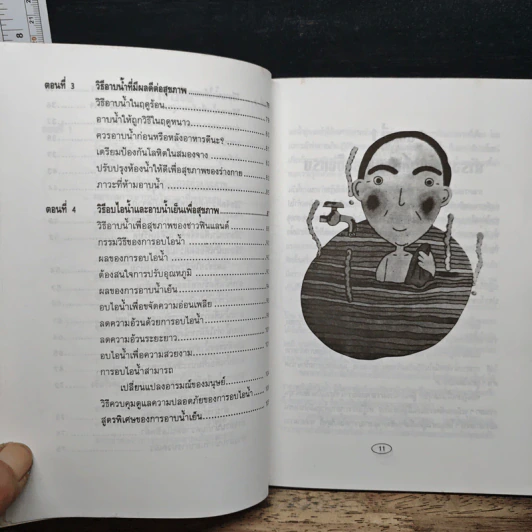 ตอนที่ 3 วิธีอาบน้ำที่มีผลดีต่อสุขภาพ
วิธีอาบน้ำในฤดูร้อน
อาบน้ำให้ถูกวิธีในฤดูหนาว
ควรอาบน้ำก่อนหรือหลังอาหารดีนะ?
เตรียมป้องกันโลหิตในสมองจาง
ปรับปรุงห้องน้ำให้ดีเพื่อสุขภาพของร่างกาย
ภาวะที่ห้ามอาบน้ำ
ตอนที่ 4 วิธีอบไอน้ำและอาบน้ำเย็นเพื่อสุขภาพ
วิธีอาบน้ำเพื่อสุขภาพของชาวฟินแลนด์
กรรมวิธีของการอบไอน้ำ
ผลของการอบไอน้ำ
ต้องสนใจการปรับอุณหภูมิ
ผลของการอาบน้ำเย็น
อบไอน้ำเพื่อขจัดความอ่อนเพลีย
ลดความอ้วนด้วยการอบไอน้ำ
ลดความอ้วนระยะยาว
อบไอน้ำเพื่อความสวยงาม
การอบไอน้ำสามารถ
เปลี่ยนแปลงอารมณ์ของมนุษย์
วิธีควบคุมดูแลความปลอดภัยของการอบไอน้ำ
สูตรพิเศษของการอาบน้ำเย็น
11